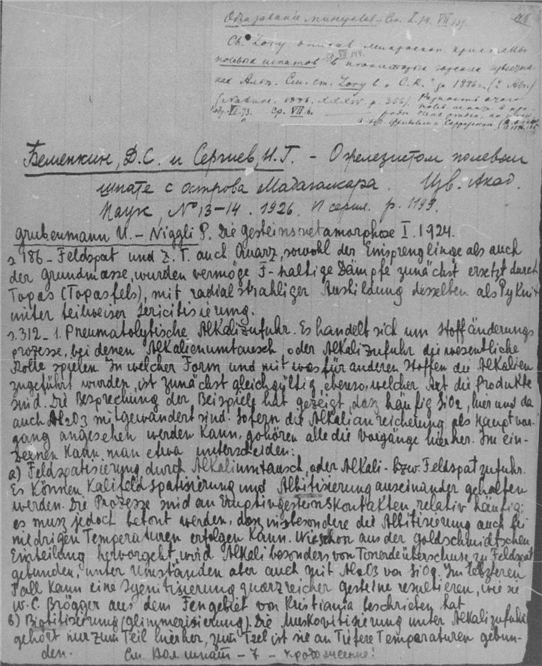 Образование минералов – См. I. 14. VII
Св. Lory описав микроскоп. кристаллы
полевых шпатов в
См. ст. Lory в "C. R." за 1886 г.
Беменкин, Д.С. и Сергиев, И.Г. – О железистом полевом
шпате с острова Мадагаскара. Изв. Акад.
Наук, № 13–14. 1926. VI серия. p. 1199.
Grubenmann U. – Niggli P. Die Gesteinsmetamorphose I. 1924.
s. 186 – Feldspat und z. T. auch Quarz, sowohl der Einsprenglinge als auch
der Grundmasse, wurden vermöge F-haltige Dämpfe zunächst ersetzt durch
Topas (Topasfels), mit radialstrahliger Ausbildung desselben als Pyknit
unter teilweiser Sericitisierung.
s. 312 – 1. Pneumatolytische Alkalizufuhr. Es handelt sich um Stoffänderungs
prozesse, bei denen Alkalienumtausch oder Alkalizufuhr die wesentliche
Rolle spielen. In welcher Form und mit was für anderen Stoffen die Alkalien
zugeführt werden, ist zunächst gleichgültig, ebenso, welcher Art die Produkte
sind. Die Besprechung der Beispiele hat gezeigt, dass häufig SiO2, hier und da
auch Al2O3 mitgewandert sind. Sofern die Alkalianreicherung als Hauptvor-
gang angesehen werden kann, gehören alle die Vorgänge hierher. Im ein-
zelnen kann man etwa unterscheiden:
a) Feldspatisierung durch Alkaliumtausch, oder Alkali- bzw. Feldspatzufuhr.
Es können Kalifeldspatisierung und Albitisierung auseinander gehalten
werden. Die Prozesse sind an Eruptivgesteinskontakten relativ häufig;
es muss jedoch betont werden, dass insbesondere die Albitisierung auch bei
niedrigen Temperaturen erfolgen kann. Wie schon aus der Goldschmidtschen
Einteilung hervorgeht, wird Alkali besonders von Tonerdeüberschuss zu Feldspat
gebunden, unter Umständen aber auch mit Al2O3 von SiO2. Im letzteren
Fall kann eine Syenitisierung quarzreicher Gesteine resultieren, wie sie
W. C. Brögger aus dem Fengebiet von Kristiania beschrieben hat.
b) Biotitisierung (Glimmerisierung). Die Muskovitisierung unter Alkalizufuhr
gehört nur zum Teil hierher, zum Teil ist sie an tiefere Temperaturen gebun-
den. См. Вол. шпат – 7 – продолжение!